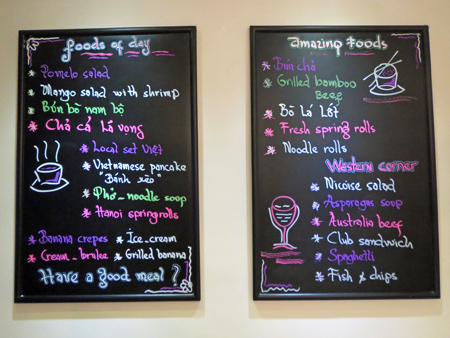 foods of day
Pomelo salad
Mango salad with shrimp
Bún bò nam bộ
Chả cá Lá vọng
Local set Việt
Vietnamese pancake
"Bánh xèo"
Phở - noodle soup
Hanoi spring rolls
Banana crepes
Ice-cream
Cream-brulee
Grilled banana
Have a good meal!
amazing foods
Bún chả
Grilled bamboo
Beef
Bò Lá Lốt
Fresh spring rolls
Noodle rolls
Western corner
Nicoise salad
Asparagus soup
Australia beef
Club sandwich
Spaghetti
Fish & chips